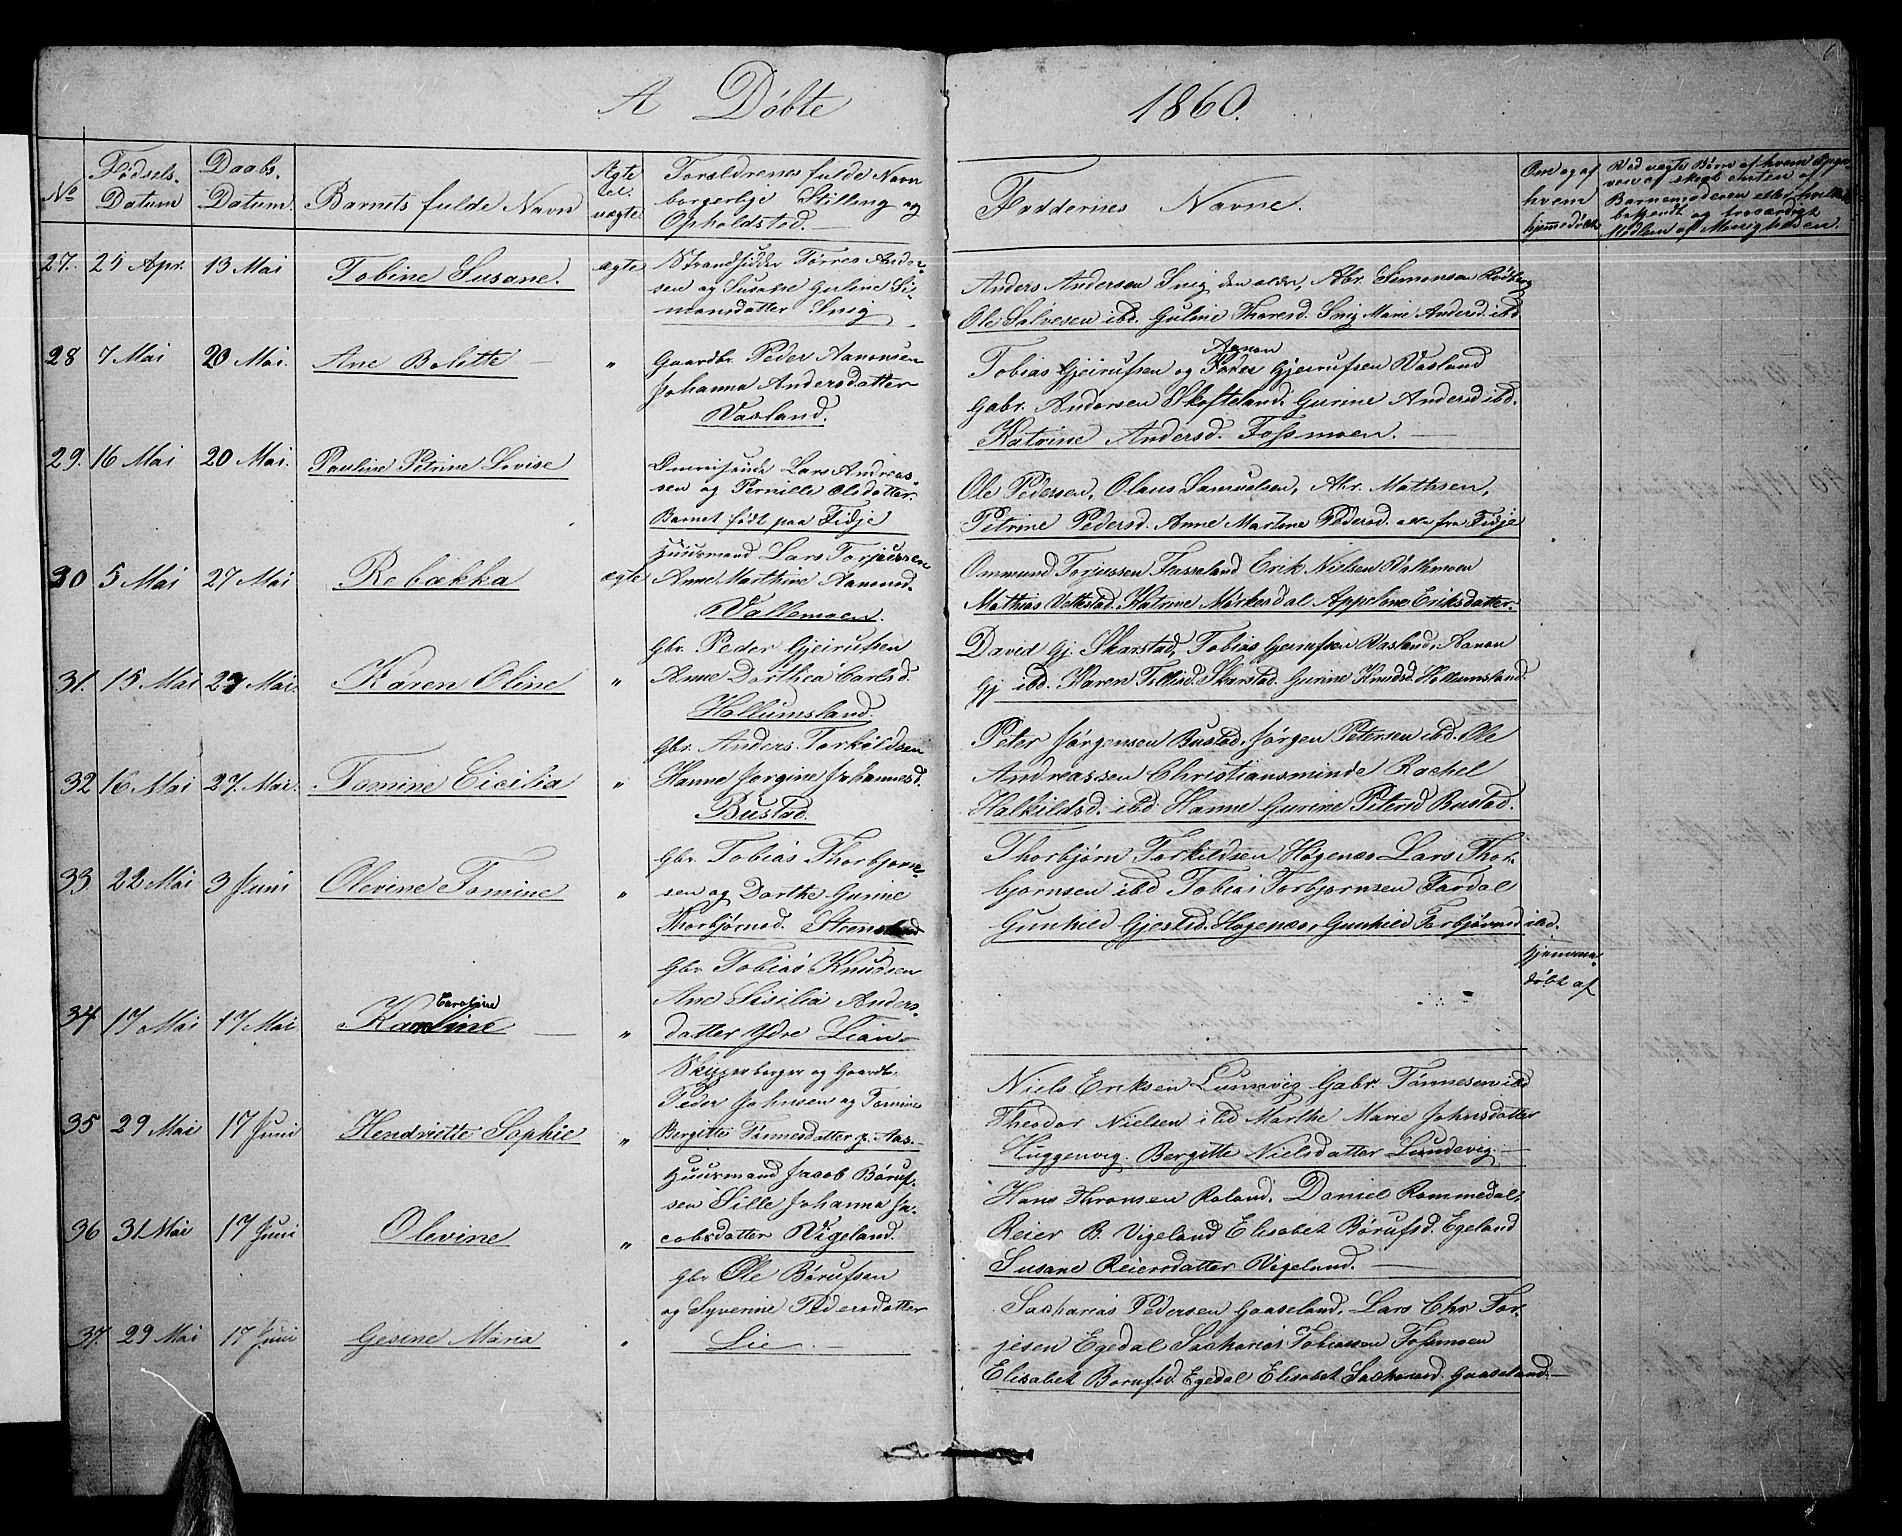 6
A Døbte 1860.
No
Fødsels-
Datum
Daabs-
Datum.
Barnets fulde Navn
Ægte
el.
uægte
Forældrenes fulde Navn
borgerlige Stilling og
Opholdsted.
Faddernes Navne.
Om og af
hvem
hjemmedøbt.
Ved uægte Børn af hvem Opgi-
Barnemoderen eller
bekjendt og troværdigt
Medlem af Menigheden.
27. 25 Apr. 13 Mai Tobine Susane. ægte
Strandsidder Tørres Ander-
sen og Susane Guline Si-
monsdatter Snig
Anders Andersen Snig den eldre, Abr. Simonsen Rødberg
Ole Salvesen ibd. Guline Thoresd. Snig Marie Andersd. ibd
28 7 Mai 20 Mai. Ane Bolette — "
Gaardbr. Peder Aanonsen
Johanna Andersdatter
Vasland.
Aanon
Tobias Gjeirufsen og Peder Gjeirufsen Vasland
Gabr. Andersen Skofteland. Gurine Andersd ibd.
Katrine Andersd. Fossmoen. —
29. 16 Mai 20 Mai. Pauline Petrine Lovise
Omreisende Lars Andreas-
sen og Pernille Olsdatter.
Barnet født paa Fidje
Ole Pedersen, Olaus Samuelsen, Abr. Mathisen,
Petrine Pedersd. Anne Martine Pedersd. alle fra Fidje
30 5 Mai 27 Mai Rebækka ægte
Huusmand Lars Torjussen
Anne Marthine Aanonsd.
Vallemoen.
Ommund Torjussen Fasseland Erik Nielsen Valemoen
Mathias Vettestad. Katrine Mørkesdal Appelone Eriksdatter.
31. 15 Mai 27 Mai. Karen Oline "
Gbr. Peder Gjeirufsen
Anne Dorthea Carlsd.
Hallumsland.
David Gj. Skarstad, Tobias Gjeirufsen Vasland, Aanon
Gj ibd. Karen Tellisd. Skarstad. Gurine Knudsd. Hollumsland.
32 16 Mai 27. Mai. Tomine Cicilia "
Gbr. Anders Torkildsen
Hanne Jorgine Johannesd.
Bustad.
Peter Jørgensen Bustad, Jørgen Petersen ibd. Ole
Andreassen Christiansminde Rachel
Halkildsd. ibd Hanne Gurine Petersd Bustad.
33. 22 Mai 3 Juni Olevine Tomine "
Gbr. Tobias Thorbjørn-
sen og Dorthe Gurine
Thorbjørnsd. Steensland
Thorbjørn Torkildsen Høgenæs Lars Thor-
bjornsen ibd Tobias Torbjornsen Fardal
Gunhild Gjestsd. Høgenæs, Gunhild Torbjørnsd ibd.
34 17 Mai 17 Mai Caroline
Karoline — "
Gbr. Tobias Knudsen
Ane Sisilia Anders-
datter Ydre Lian
Hjemme-
døbt af
35 29 Mai 17 Juni Henriette Sophie "
Skipperborger og Gaardb.
Peder Johnsen og Tomine
Bergitte Tønnesdatter p. Aas.
Niels Eriksen Lunnvig Gabr. Tønnesen ibd
Theodor Nielsen ibd Marthe Marie Johnsdatter
Huggenvig. Bergitte Nielsdatter Lundevig. —
36 31 Mai 17 Juni Olevine "
Huusmand Jacob Børuf-
sen Sille Johanna Ja-
cobsdatter Vigeland.
Hans Thronsen Roland. Daniel Rommedal,
Reier B. Vigeland Elisabet Børufsd. Egeland
Susane Reiersdatter Vigeland. —
37. 29 Mai 17 Juni Gesine Maria "
Gbr Ole Børufsen
og Syverine Pedersdatter
Lie. —
Sacharias Pedersen Gaaseland. Lars Chr. Tor-
jesen Egedal Sacharias Tobiassen Fossmoen
Elisabet Borufsd. Egedal Elisabet Sachariasd. Gaaseland. —